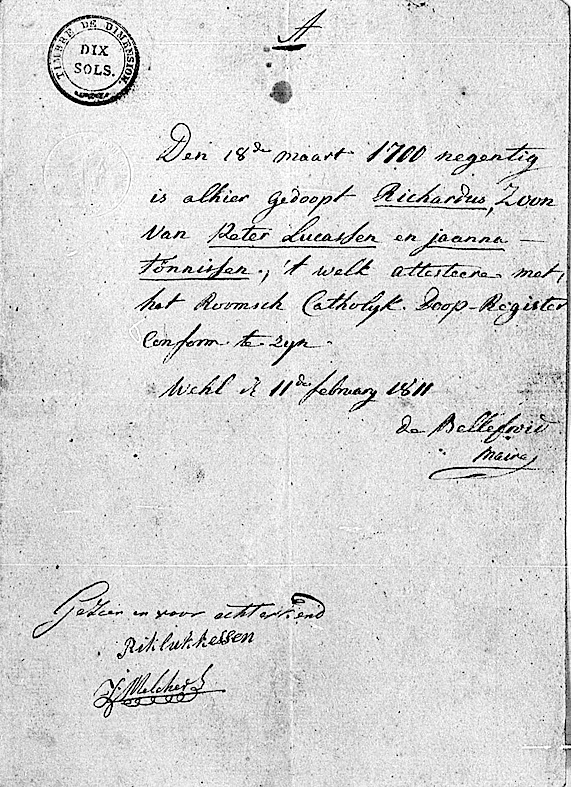 A
TIMBRE DE DIMENSION.
DIX
SOLS.
Den 18de maart 1700 negentig
is alhier gedoopt Richardus, Zoon
van Peter Lucassen en jaanna
Tönnissen, 't welk attesteere met,
het Roomsch Catholyk Doop-Register
Conform te zyn.
Wehl d 11de february 1811
de Bellefroid
Maire
Gezien en voor acht erkend
Rik lukkessen
J: Melchers